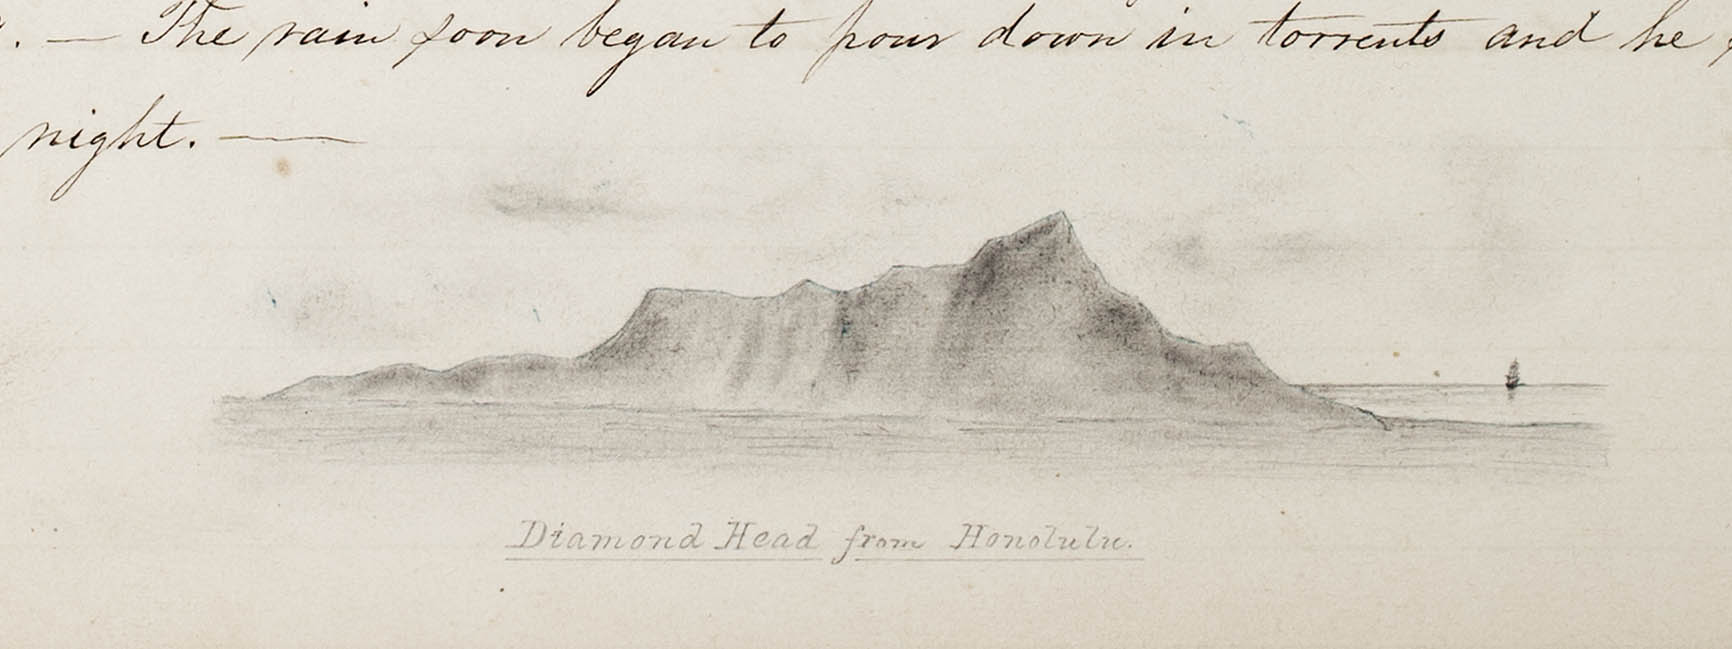 . — The rain soon began to pour down in torrents and he
night. —
Diamond Head from Honolulu.